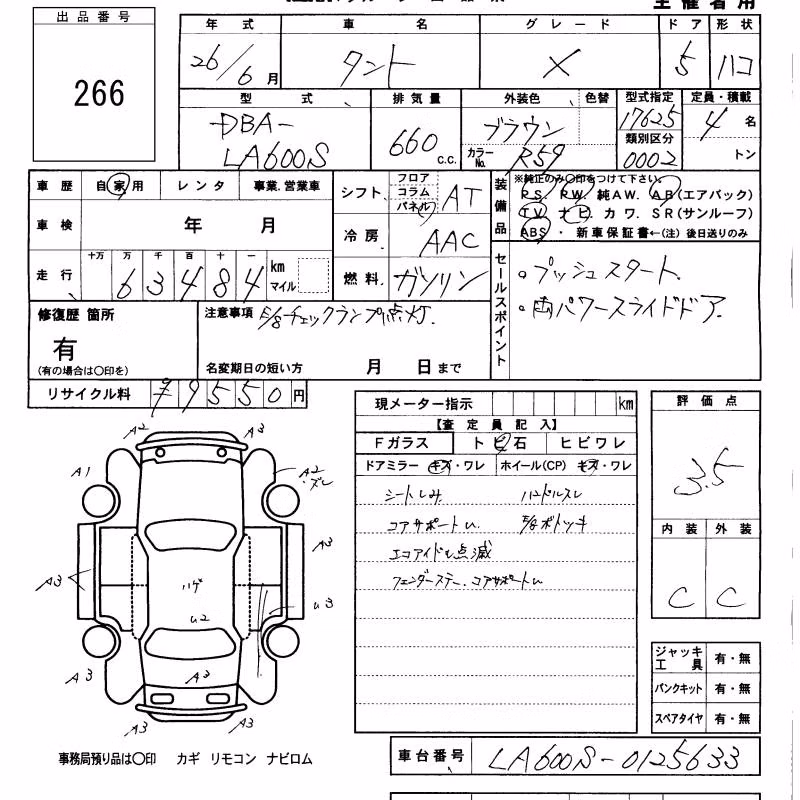 主催者用
出品番号
266
年式 車名 グレード ドア 形状
26/6月 タント X 5 ハコ
型式 排気量 外装色 色替 型式指定 定員・積載
DBA-
LA600S
660 c.c.
ブラウン
カラーNo. R59
17625
類別区分
0002
4名
トン
車歴 自家用 レンタ 事業.営業車
車検 年 月
走行 十万 万 千 百 十 一
63484 km
マイル
シフト フロア コラム パネル AT
冷房 AAC
燃料 ガソリン
装備品 ※純正のみ○印をつけて下さい。
PS. RW. 純AW. AB(エアバック)
TV ナビ. カワ. SR(サンルーフ)
ABS ・ 新車保証書←(注) 後日送りのみ
セールスポイント
。プッシュスタート.
。両パワースライドドア.
修復歴 箇所
有
(有の場合は○印を)
注意事項 E/gチェックランプ点灯.
名変期日の短い方 月 日まで
リサイクル料 ¥9550円
現メーター指示 km
【査定員記入】
Fガラス トビ石 ヒビワレ
ドアミラー キズ・ワレ ホイール(CP) キズ・ワレ
シートしみ ハンドルスレ
コアサポートU. E/gボトツキ
エコアイドル点滅
フェンダーステー. コアサポートU
評価点
3.5
内装 外装
C C
A2 A3
A1 A2.ズレ
A3 A3
ハゲ
U2 U3
A3 A3 A3
A3 A3
ジャッキ
工具 有・無
パンクキット 有・無
スペアタイヤ 有・無
事務局預り品は○印 カギ リモコン ナビロム
車台番号 LA600S-0125633